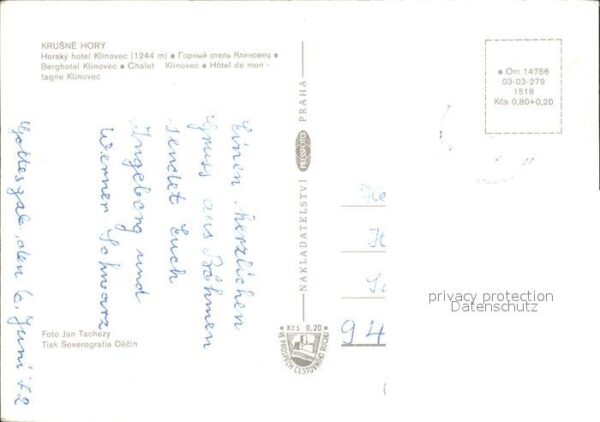 KRUŠNÉ HORY
Horský hotel Klínovec (1244 m) • Горный отель Клиновец •
Berghotel Klínovec • Chalet Klínovec • Hôtel de mon -
tagne Klínovec
Om 14756
03-03-279
1518
Kčs 0,80+0,20
NAKLADATELSTVÍ PRESSFOTO PRAHA
Gottesgab, den 6. Juni 72
Einen herzlichen
Gruss aus Böhmen
sendet Euch
Ingeborg und
Werner Schwarz
He
H
94
privacy protection
Datenschutz
Kčs 0,20
VE PROSPĚCH CESTOVNÍHO RUCHU
Foto Jan Tachezy
Tisk Severografia Děčín